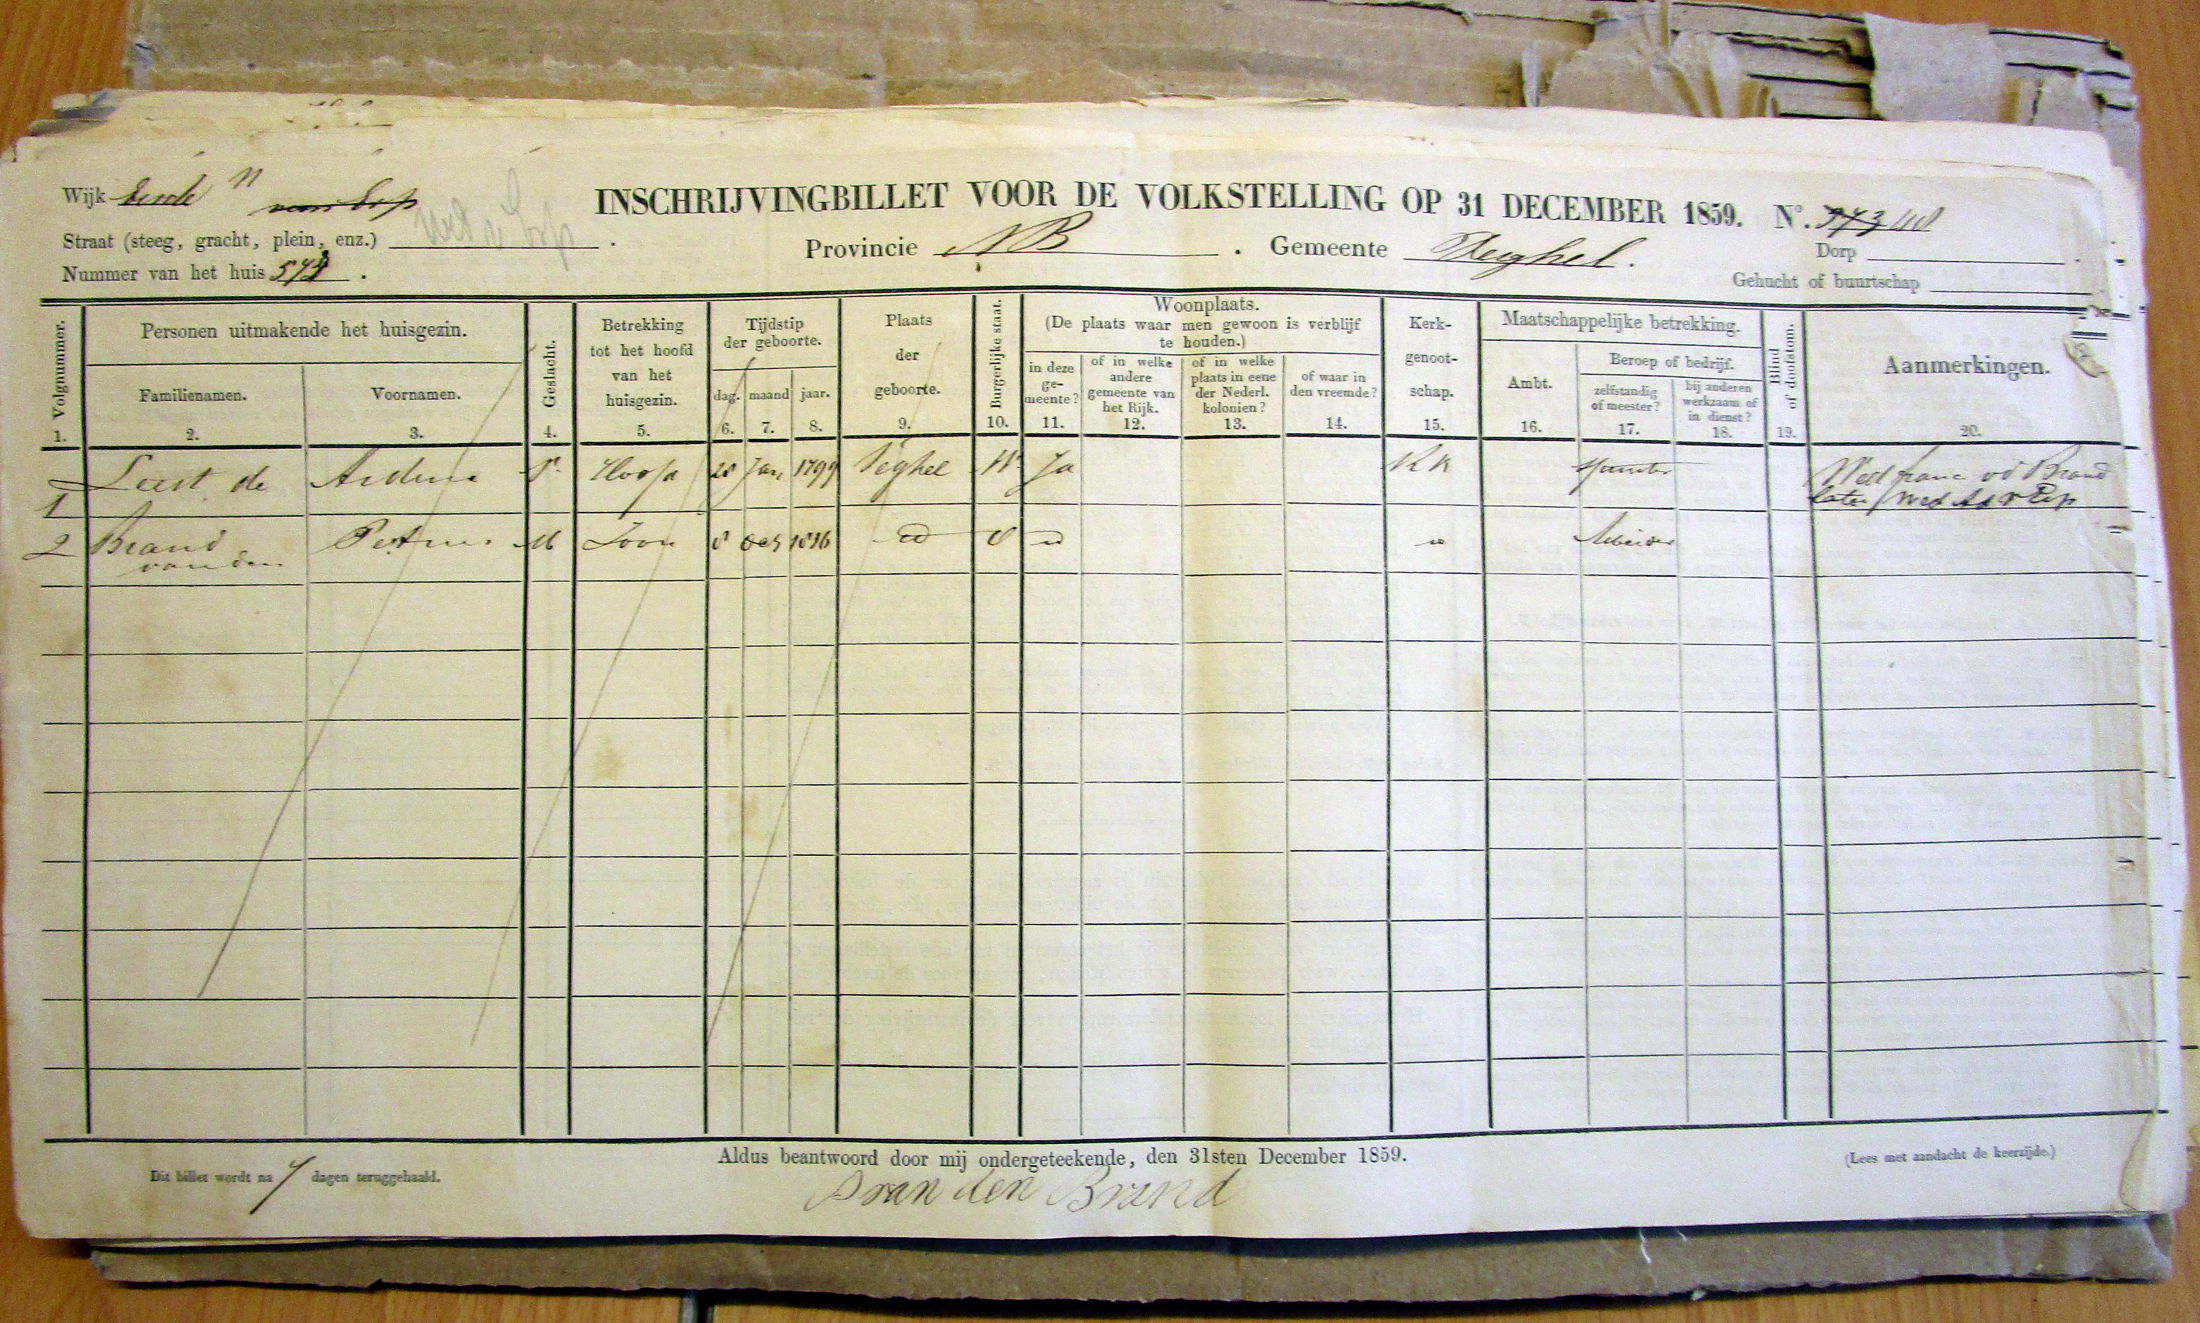 Wijk Eerde N
INSCHRIJVINGBILLET VOOR DE VOLKSTELLING OP 31 DECEMBER 1859. No. 573
Straat (steeg, gracht, plein, enz.)
Provincie NB. Gemeente Veghel.
Dorp
Nummer van het huis
Gehucht of buurtschap
Volgnummer.
Personen uitmakende het huisgezin.
Geslacht.
Betrekking tot het hoofd van het huisgezin.
Tijdstip der geboorte.
Plaats der geboorte.
Burgerlijke staat.
Woonplaats.
(De plaats waar men gewoon is verblijf te houden.)
Kerk-genoot-schap.
Maatschappelijke betrekking.
Blind of doofstom.
Aanmerkingen.
Familienamen. Voornamen.
dag. maand jaar.
in deze ge-meente?
of in welke andere gemeente van het Rijk.
of in welke plaats in eene der Nederl. kolonien?
of waar in den vreemde?
Ambt.
Beroep of bedrijf.
zelfstandig of meester?
bij anderen werkzaam of in dienst?
1. 2. 3. 4. 5. 6. 7. 8. 9. 10. 11. 12. 13. 14. 15. 16. 17. 18. 19. 20.
1 Leest de Ardina Vr Hoofd 28 Jan 1799 Veghel W Ja RK
Wed franc vd Brand
later wed
2 Brand van den Petrus M Zoon 8 Oct 1836 O Arbeider
Aldus beantwoord door mij ondergeteekende, den 31sten December 1859.
Dit billet wordt na 7 dagen teruggehaald.
(Lees met aandacht de keerzijde.)
van den Brand